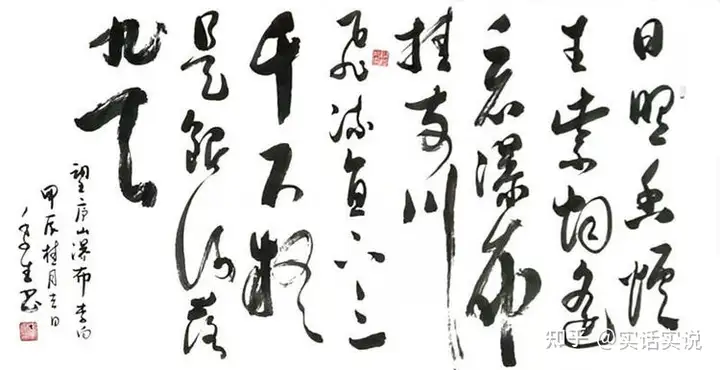 日照香炉
生紫烟遥
看瀑布
挂前川
飞流直下三
千尺疑
是银河落
九天
望庐山瀑布李白
甲辰桂月吉日
生书
知乎 @实话实说